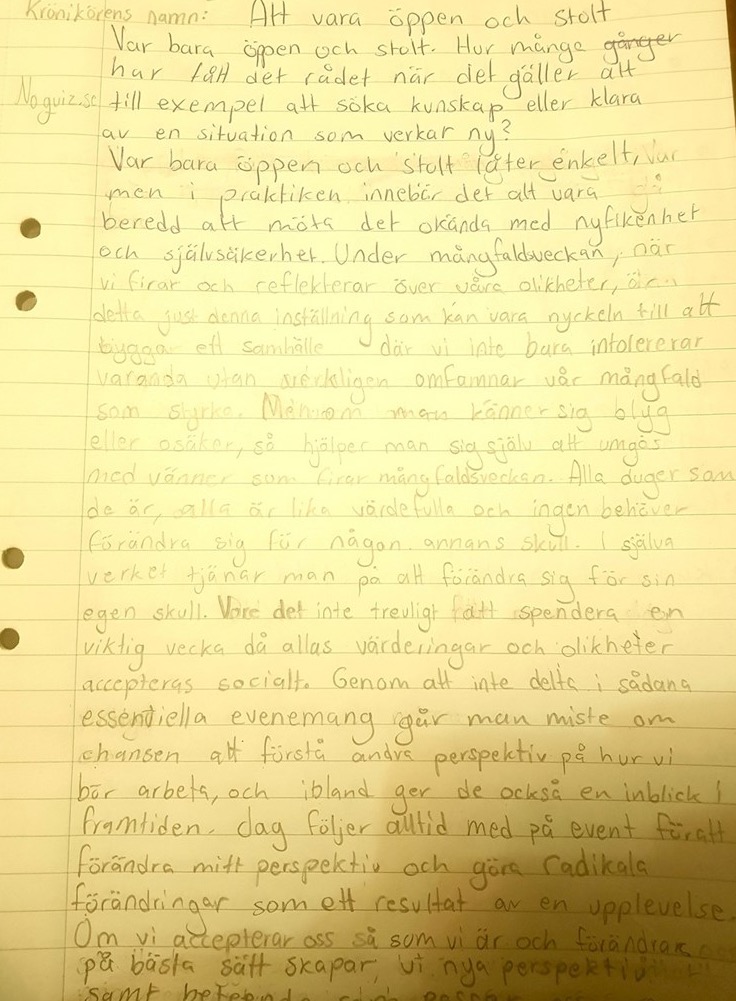 Krönikörens namn: Att vara öppen och stolt
Var bara öppen och stolt. Hur många gånger
har fått det rådet när det gäller att
Noquiz.se till exempel att söka kunskap eller klara
av en situation som verkar ny?
Var bara öppen och stolt låter enkelt, var
men i praktiken innebär det att vara
beredd att möta det okända med nyfikenhet
och självsäkerhet. Under mångfaldsveckan, när
vi firar och reflekterar över våra olikheter, är
detta just denna inställning som kan vara nyckeln till att
bygga ett samhälle där vi inte bara intolererar
varandra utan verkligen omfamnar vår mångfald
som styrka. Men om man känner sig blyg
eller osäker, så hjälper man sig själv att umgås
med vänner som firar mångfaldsveckan. Alla duger som
de är, alla är lika värdefulla och ingen behöver
förändra sig för någon annans skull. I själva
verket tjänar man på att förändra sig för sin
egen skull. Vore det inte trevligt att spendera en
viktig vecka då allas värderingar och olikheter
accepteras socialt. Genom att inte delta i sådana
essentiella evenemang går man miste om
chansen att förstå andra perspektiv på hur vi
bör arbeta, och ibland ger de också en inblick i
framtiden. Jag följer alltid med på event föratt
förändra mitt perspektiv och göra radikala
förändringar som ett resultat av en upplevelse.
Om vi accepterar oss så som vi är och förändras
på bästa sätt skapar vi nya perspektiv
samt